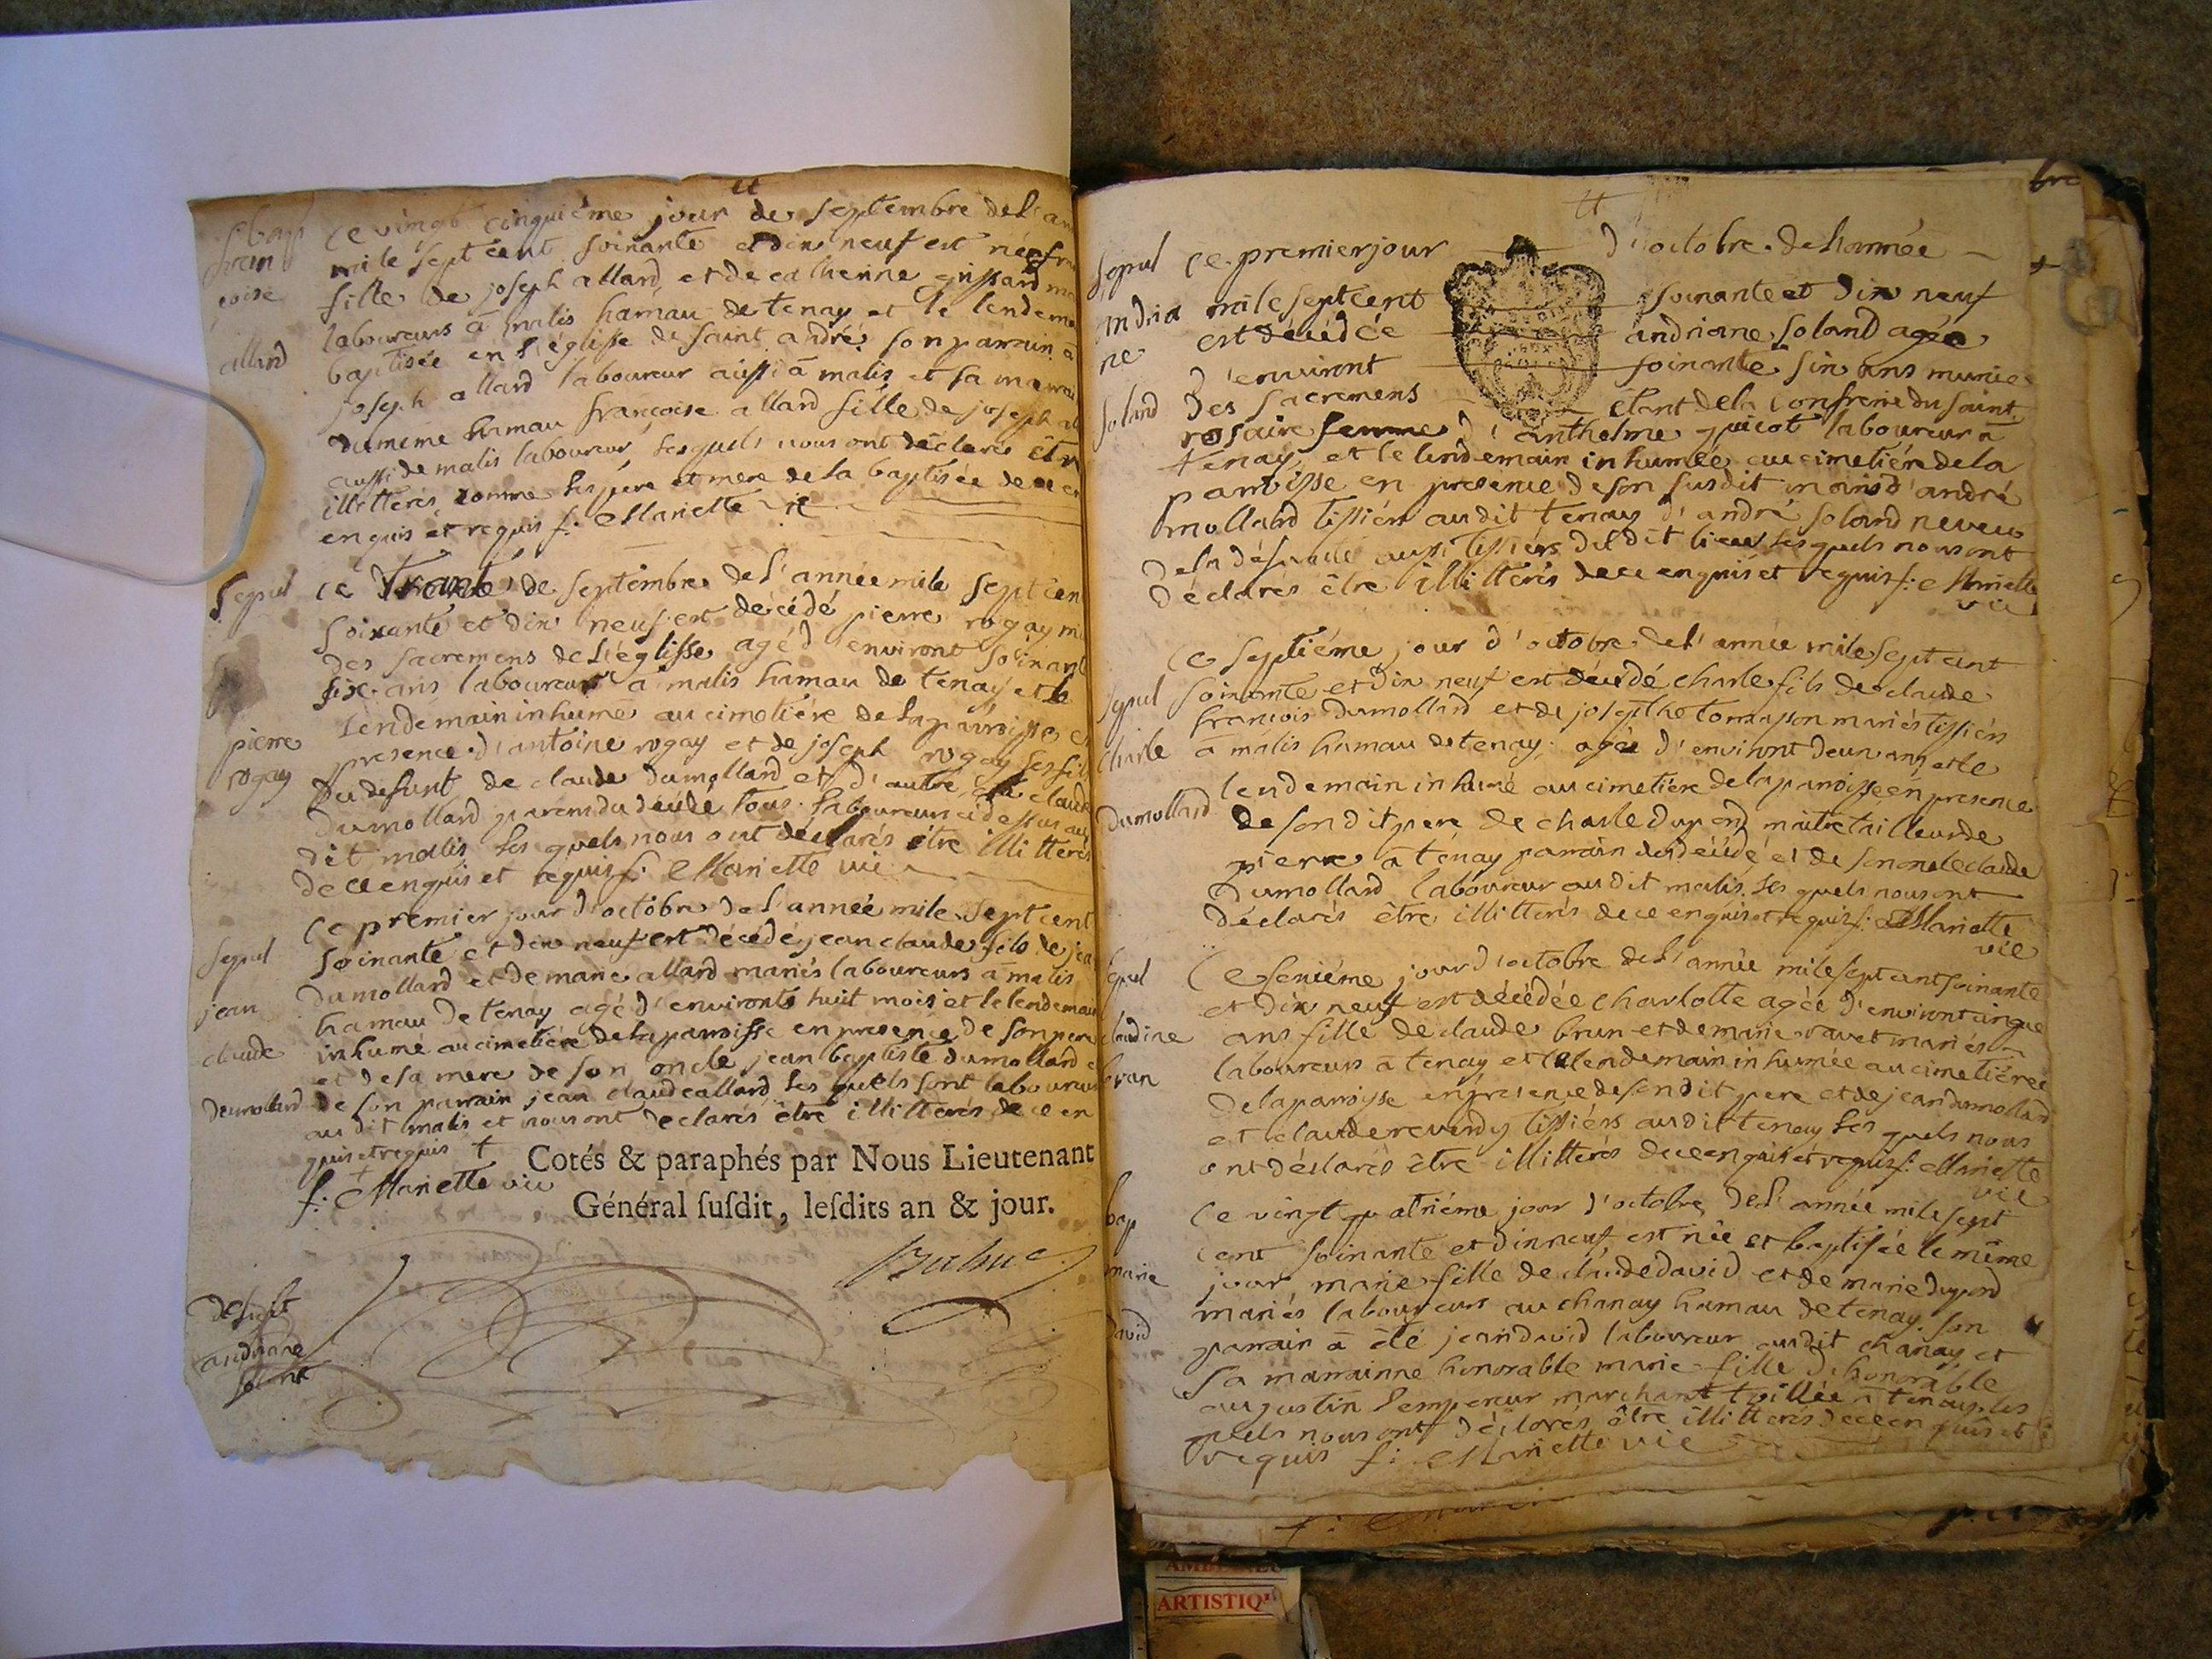 bap
fran
coise
allard
ce vingt cinquiéme jour de septembre de l'an
mile sept cent soixante et dix neuf est née fr
fille de joseph allard et de catherine grissard ma
laboureurs à malis hamau de tenay et le lendem
baptisée en l'église de saint andré son parrain à
joseph allard laboureur aussi à malis et sa marai
du meme hamau francoise allard fille de joseph al
aussi de malis laboureur, les quels nous ont déclarés êtr
illitterés, comme les père et mere de la baptisée de ce en
enquis et requis f: Mariette vic
Sepul
pierre
rogay
ce trante de septembre de l'année mile sept cen
soixante et dix neuf est décédé pierre rogay mu
des sacremens de l'église agé d'environt soixant
six ans laboureur à malis hamau de tenay et le
lendemain inhumé au cimetiére de la paroisse en
presence d'antoine rogay et de joseph rogay ses fi
du defunt de claude dumollard et d'autre claude
dumollard parens du décédé tous laboureurs ci dessus au
dit malis les quels nous ont déclarés être illitterés
de ce enquis et requis f: Mariette vic
sepul
jean
claude
dumollard
Ce premier jour d'octobre de l'année mile sept cent
soixante et dix neuf est décédé jean claude fils de jea
dumollard et de marie allard mariés laboureurs à malis
hamau de tenay agé d'environts huit mois et le lendemain
inhumé au cimetiére de la paroisse en presence de son pere
et de sa mere de son oncle jean baptiste dumollard e
de son parrain jean claude allard les quels sont laboureurs
au dit malis et nous ont declarés être illitterés de ce en
quis et requis †
f: Mariette vic
Cotés & paraphés par Nous Lieutenant
Général susdit, lesdits an & jour.
andriane
solant
sepul
andria
ne
soland
Ce premier jour d'octobre de l'année
mile sept cent soixante et dix neuf
est décédée andriane soland agée
d'environt soixante six ans munie
des sacremens étant de la confrerie du saint
rosaire femme d'anthelme guicot laboureur à
tenay, et le lendemain inhumée au cimetiére de la
paroisse en presence de son susdit mari d'andré
mollard tissiér audit tenay d'andré soland neveu
de la défunte aussi tissiérs du dit lieu les quels nous ont
déclarés être illitterés de ce enquis et requis f: Mariette
vic
sepul
charle
dumollard
Ce septiéme jour d'octobre de l'année mile sept cent
soixante et dix neuf est décédé charle fils de claude
francois dumollard et de josephe tomasson mariés tissiérs
à malis hamau de tenay, agée d'environt deux ans et le
lendemain inhumé au cimetiére de la paroisse én presence
de son dit pere de charle dupond maitre tailleur de
pierre à tenay parrain du décédé et de son oncle claude
dumollard laboureur au dit malis les quels nous ont
déclarés être illitterés de ce enquis et requis f: Mariette
vic
sepul
claudine
bran
Ce seniéme jour d'octobre de l'année mile sept cent soixante
et dix neuf est décédée charlotte agée d'environt cinque
ans fille de claude brun et de marie ravet mariés
laboureurs à tenay et le lendemain inhumée au cimetiére
de la paroisse en presence de son dit pere et de jean dumollard
et claude reverdy tissiérs audit tenay les quels nous
ont déclarés être illitterés de ce enquis et requis f: Mariette
vic
bap
marie
david
Ce vingt quatriéme jour d'octobre de l'année mile sept
cent soixante et dix neuf est née et baptisée le même
jour marie fille de claude david et de marie dupond
mariés laboureurs au chanay hamau de tenay. son
parrain à été jean david laboureur audit chanay et
sa marrainne honorable marie fille d'honorable
augustin l'empereur marchant toillée à tenay, les
quels nous ont déclarés être illitterés de ce en quis et
requis f: Mariette vic
ARTISTIQU